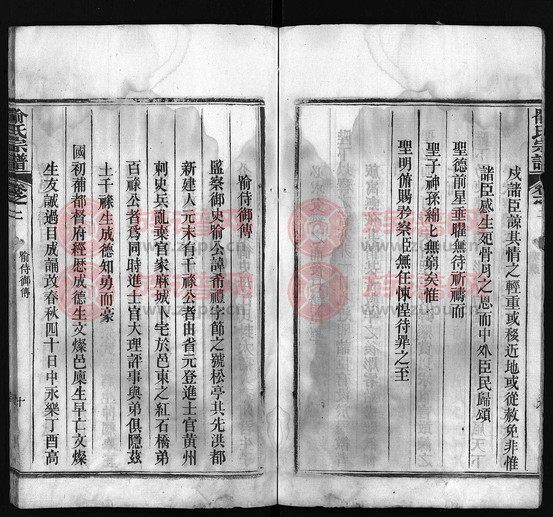 戍諸臣諒其情之輕重或移近地或從赦免非惟
諸臣感生死骨肉之恩而中外臣民歸頌
聖德前星垂曜無待祈禱而
聖子神孫綿比無窮矣惟
聖明俯賜矜察無任悚惶待罪之至
喻侍御傳
監察御史喻公諱希禮字節之號松亭其先洪都
新建人元末有千祿公者由省元登進士官黃州
刺史兵亂棄官家麻城卜宅於邑東之紅石橋弟
百祿公者為同時進士官大理評事與弟俱隱茲
土千祿生成德知勇而豪
國初補都督府經歷成德生文燦邑廩生早亡文燦
生友誠過目成誦改春秋四十日中永樂丁酉高
喻氏宗譜
卷之二
喻侍御傳
十
喻氏宗譜